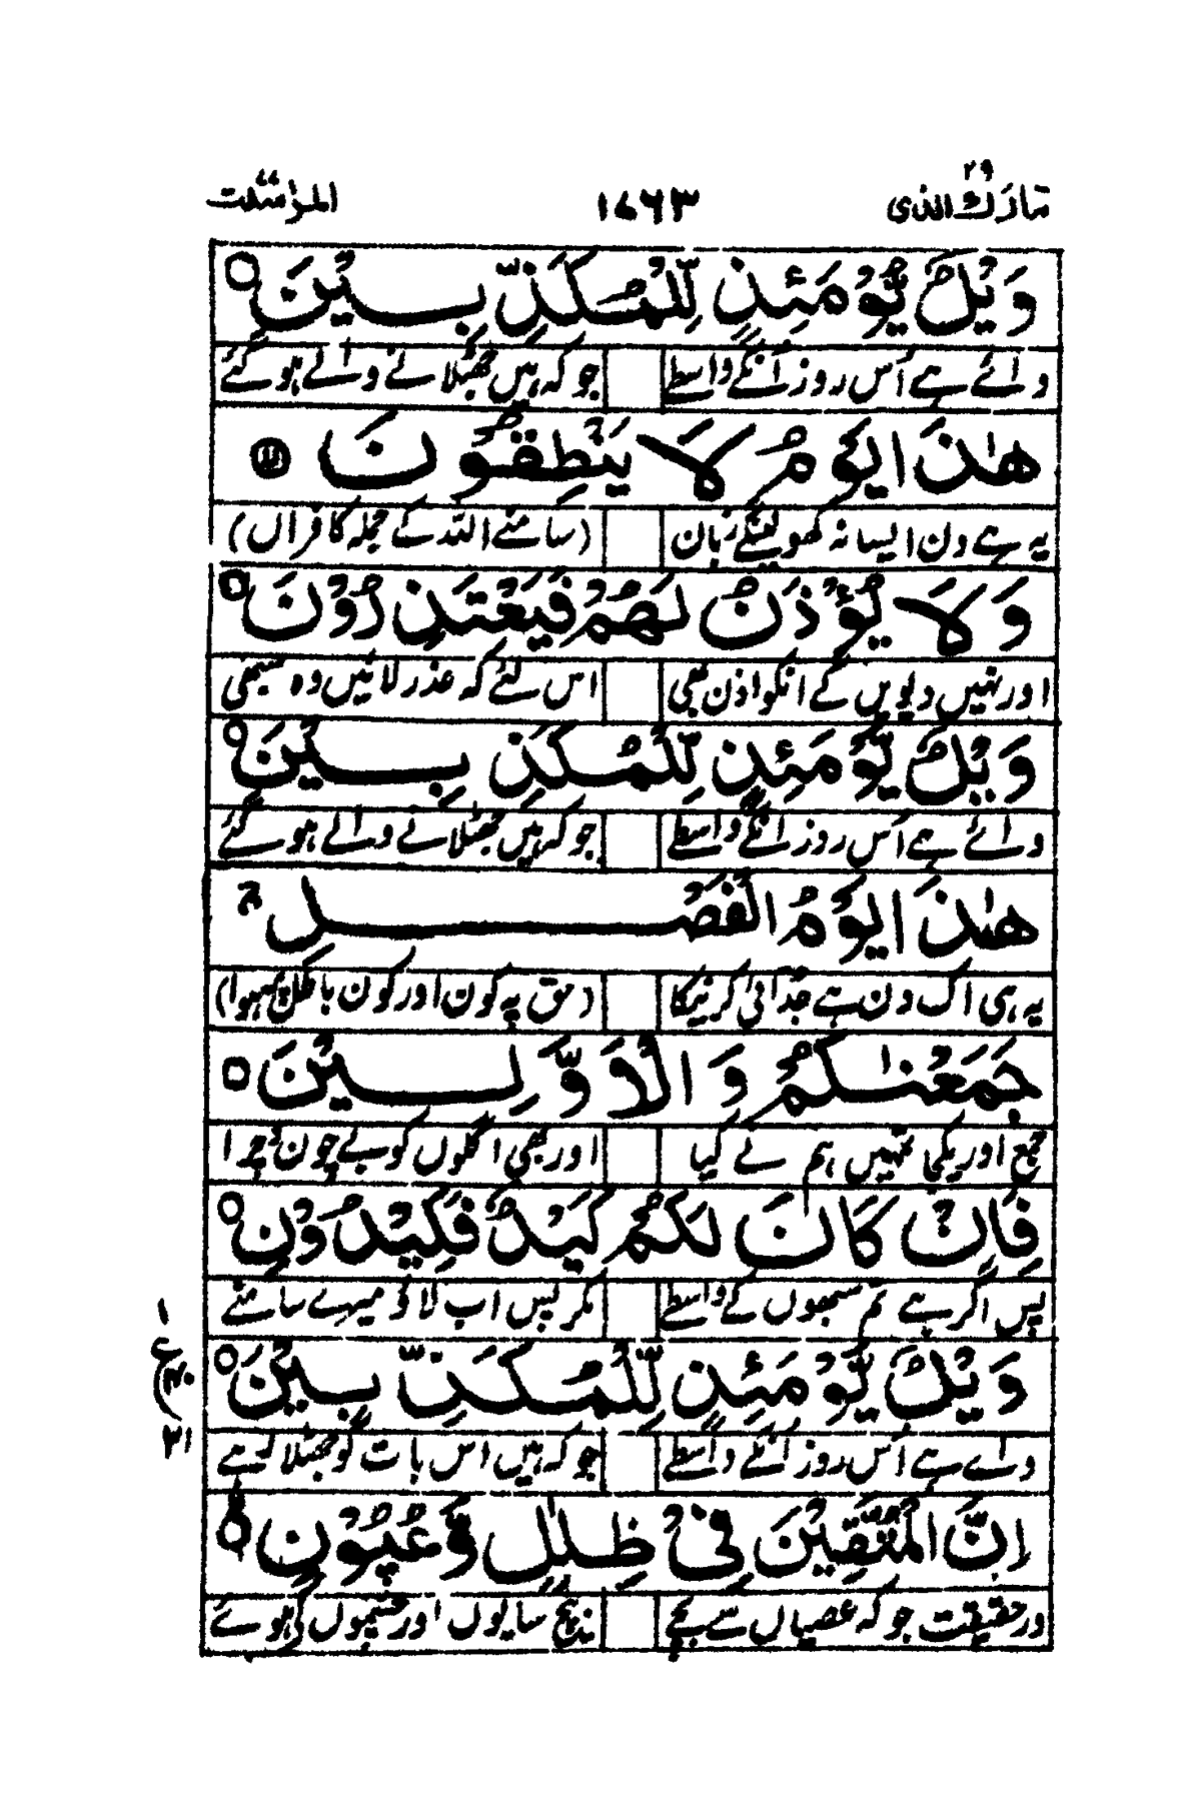 تبارك الذی ۲۹ ۱۷۶۳ المرسلت ۷۷
وَيْلٌ يَّوْمَئِذٍ لِّلْمُكَذِّبِيْنَ ○
وائے ہے اُس روز اُنکے واسطے جو کہ ہیں جھٹلانے والے ہو گئے
هٰذَا يَوْمُ لَا يَنْطِقُوْنَ
یہ ہے دن ایسا نہ کھولینگے زبان (سامنے اللہ کے جملہ کافراں)
وَلَا يُؤْذَنُ لَهُمْ فَيَعْتَذِرُوْنَ ○
اور نہیں دیویں گے انکو اذن بھی اس لئے کہ عذر لائیں وہ سبھی
وَيْلٌ يَّوْمَئِذٍ لِّلْمُكَذِّبِيْنَ ○
وائے ہے اُس روز انکے واسطے جو کہ ہیں جھٹلانے والے ہو گئے
هٰذَا يَوْمُ الْفَصْلِ ج
یہ ہی اک دن ہے جُدائی کرنیکا (حق پہ کون اور کون باطل پہ ہوا)
جَمَعْنٰكُمْ وَ الْاَوَّلِيْنَ ○
جمع اور یکجا تمہیں ہم نے کیا اور بھی اگلوں کو بے چون و چرا
فَاِنْ كَانَ لَكُمْ كَيْدٌ فَكِيْدُوْنِ ○
پس اگر ہے تم سبھوں کے واسطے مکر پس اب لاؤ میرے سامنے
وَيْلٌ يَّوْمَئِذٍ لِّلْمُكَذِّبِيْنَ ○
۱ ع ۴۰ ۲۱
وائے ہے اُس روز اُنکے واسطے جو کہ ہیں اس بات کو جھٹلا رہے
اِنَّ الْمُتَّقِيْنَ فِيْ ظِلٰلٍ وَّعُيُوْنٍ ○
در حقیقت جو کہ عصیاں سے بچے بیچ سایوں اور چشموں کی ہوئے